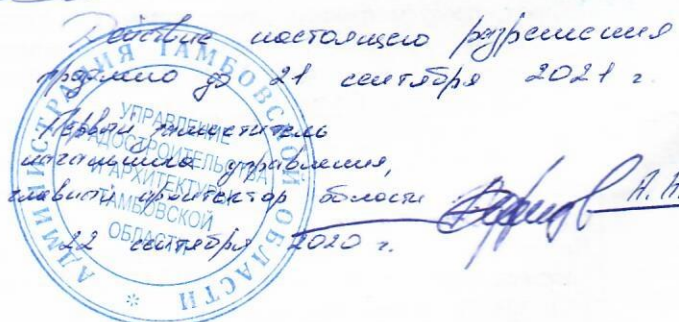 Действие настоящего разрешения
продлено до 21 сентября 2021 г.
Первый заместитель
начальника управления,
главный архитектор области
А. Н.
22 сентября 2020 г.
АДМИНИСТРАЦИЯ ТАМБОВСКОЙ ОБЛАСТИ *
УПРАВЛЕНИЕ
ГРАДОСТРОИТЕЛЬСТВА
И АРХИТЕКТУРЫ
ТАМБОВСКОЙ
ОБЛАСТИ